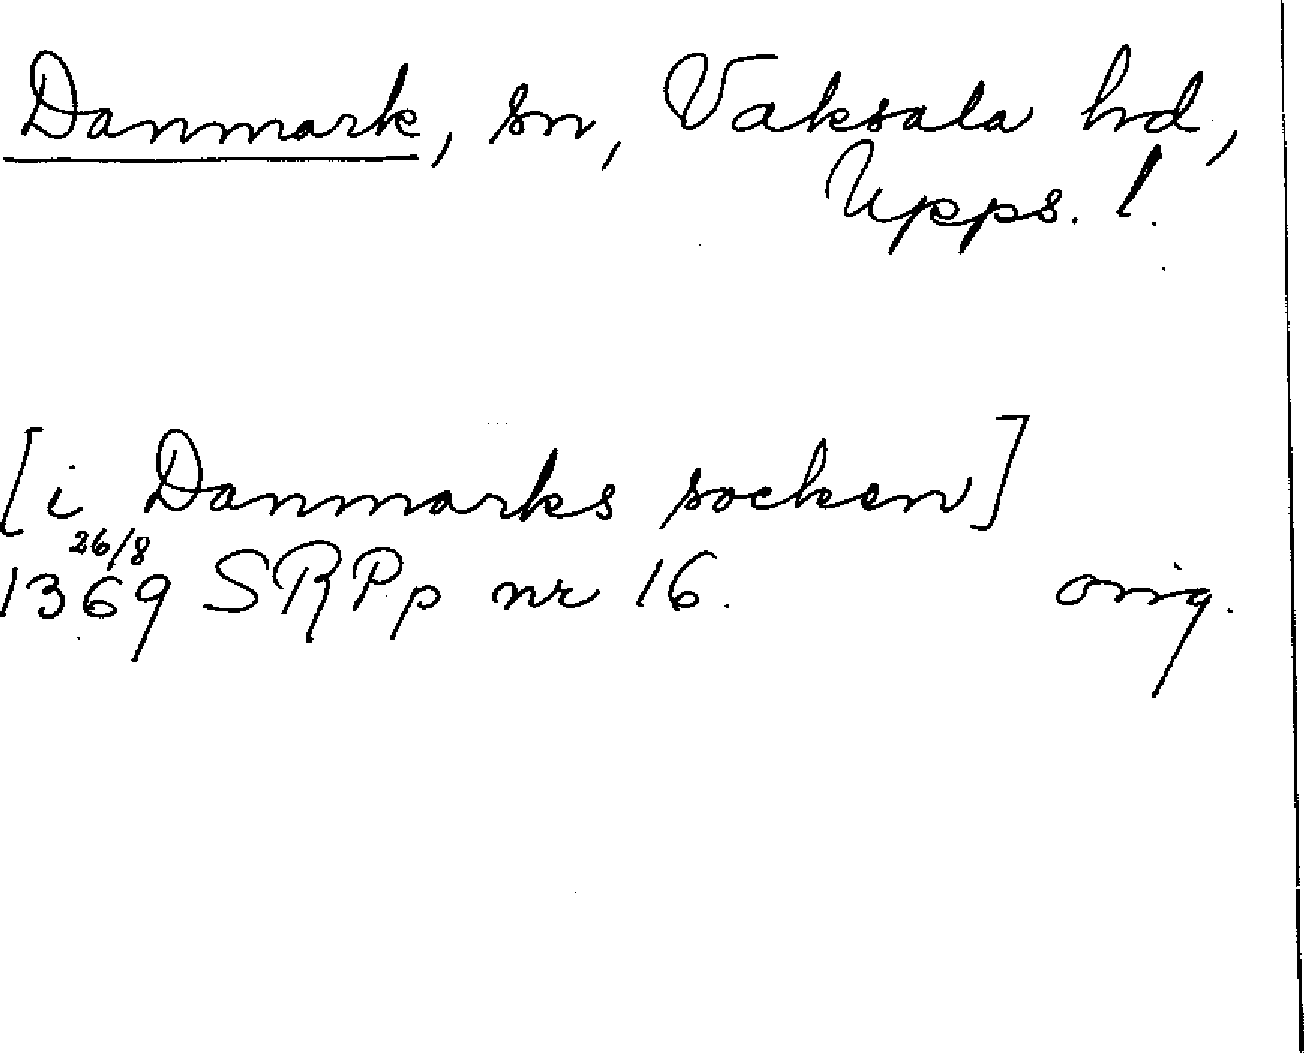 Danmark, sn, Vaksala hd,
Upps. l.
[i Danmarks socken]
26/8
1369 SRPp nr 16. orig.